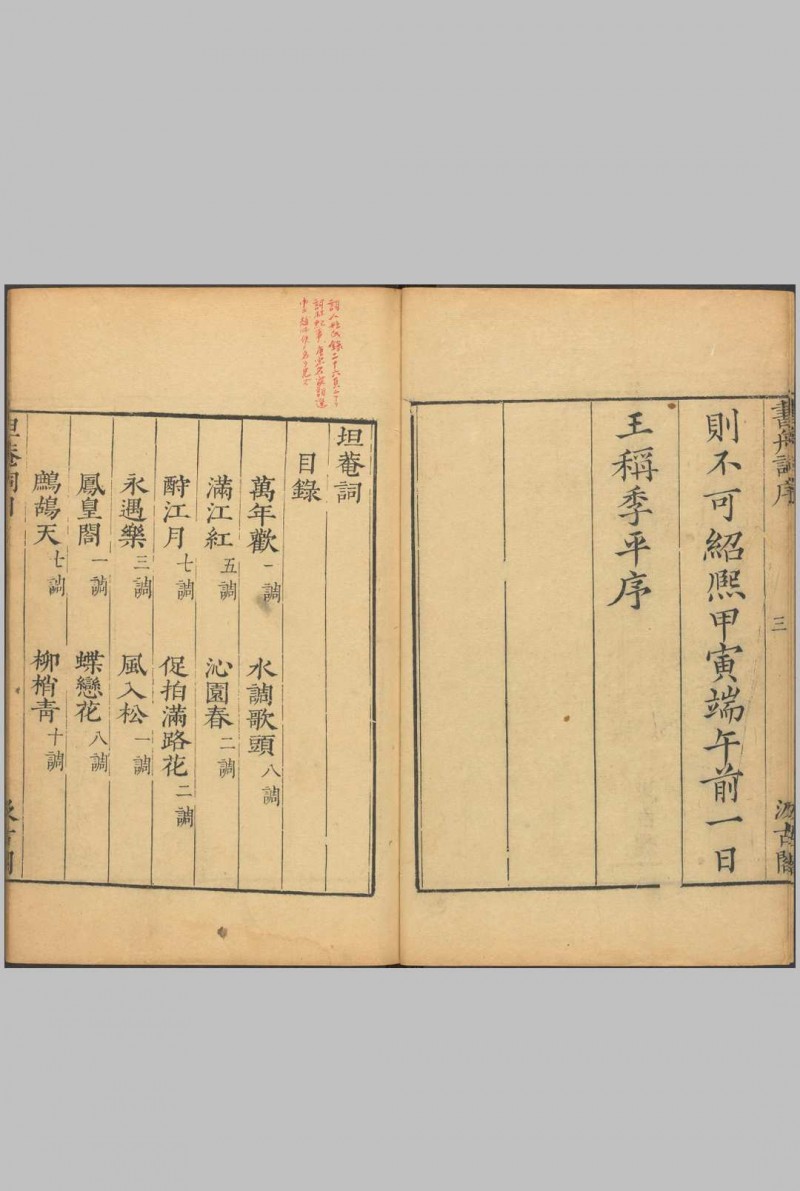 書舟詞序
三
汲古閣
則不可紹熙甲寅端午前一日
王稱季平序
坦菴詞
目錄
萬年歡一調 水調歌頭八調
滿江紅五調 沁園春二調
酹江月七調 促拍滿路花二調
永遇樂三調 風入松一調
鳳皇閣一調 蝶戀花八調
鷓鴣天七調 柳梢青十調
坦菴詞目
汲古閣